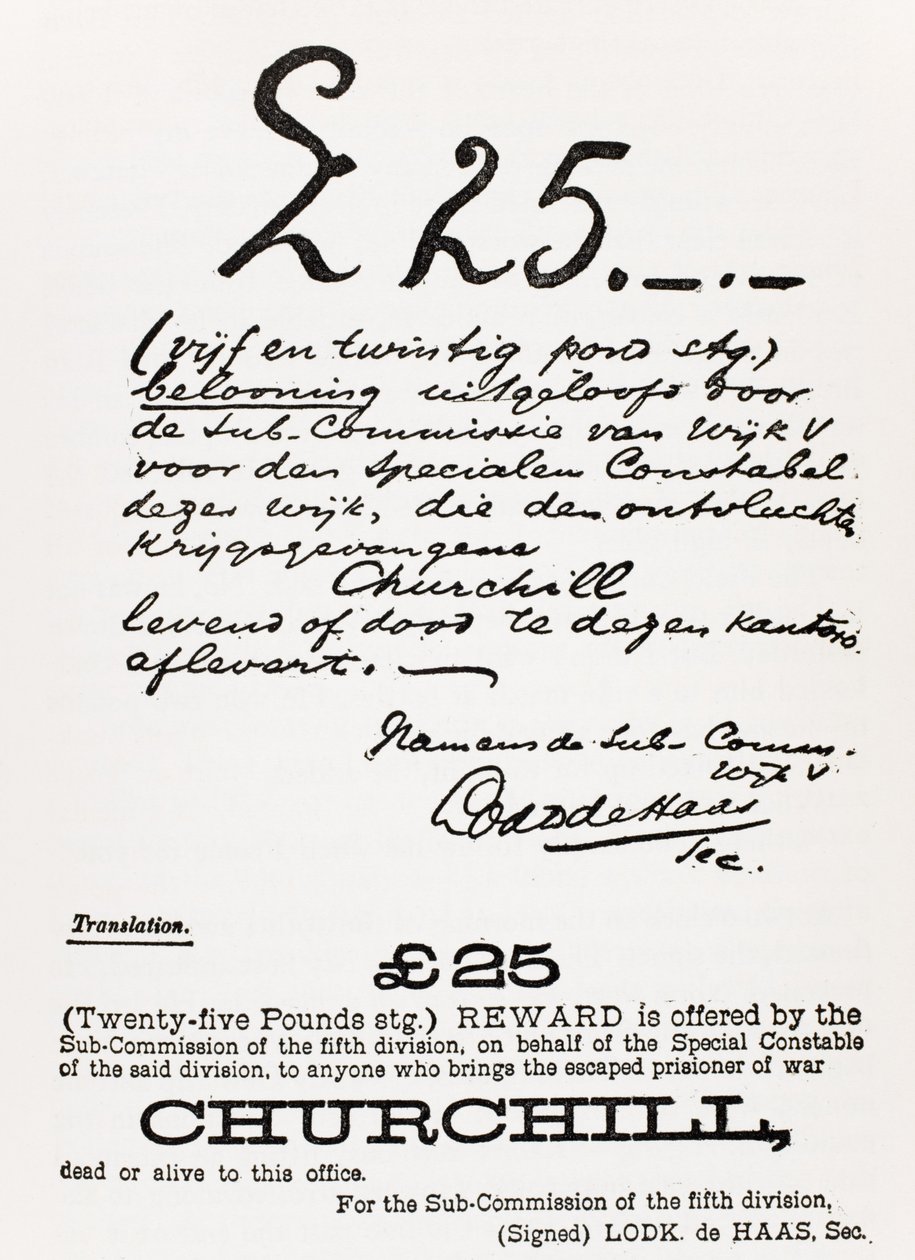 £ 25.–.–
(vijf en twintig pond stg.)
belooning uitgeloofd door
de Sub-Commissie van Wijk V
voor den Specialen Constabel
dezer wijk, die den ontvluchten
Krijgsgevangene
Churchill
levend of dood te dezen kantore
aflevert.—
Namens de Sub-Comm.
Wijk V
Lodk de Haas
Sec.
Translation.
£25
(Twenty-five Pounds stg.) REWARD is offered by the
Sub-Commission of the fifth division, on behalf of the Special Constable
of the said division, to anyone who brings the escaped prisioner of war
CHURCHILL,
dead or alive to this office.
For the Sub-Commission of the fifth division,
(Signed) LODK. de HAAS, Sec.